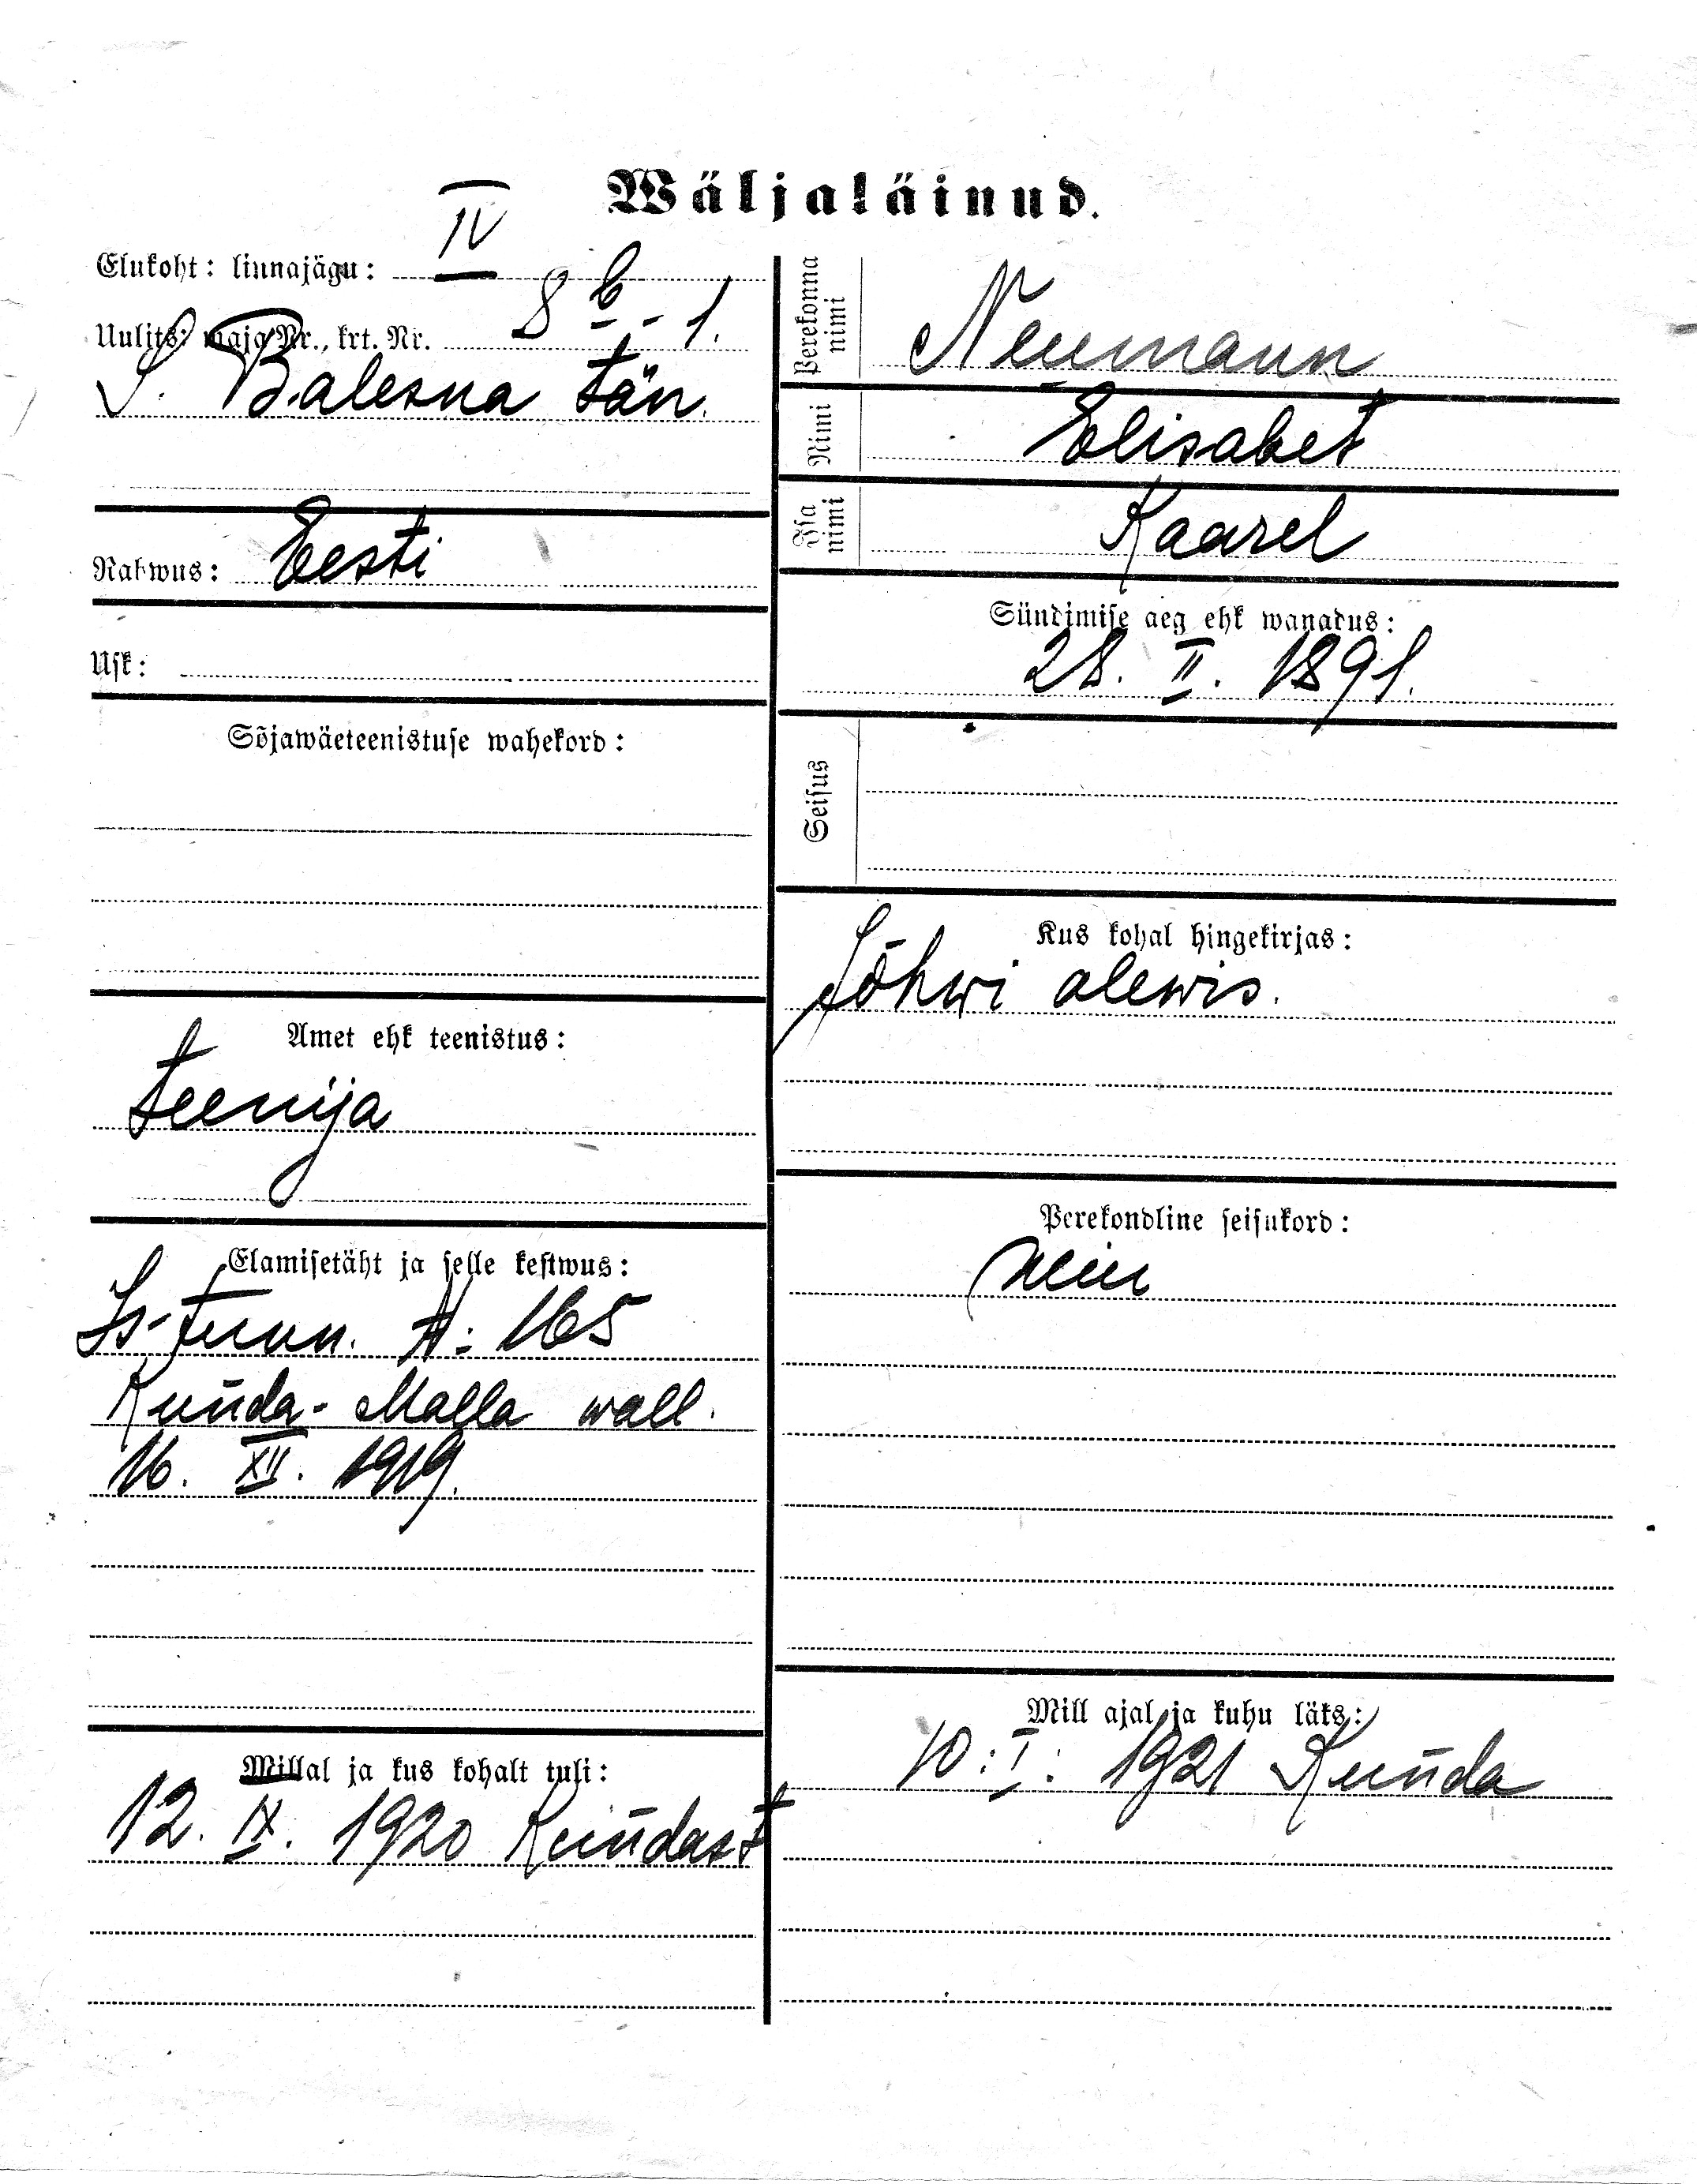 Wäljaläinud.
Elukoht: linnajägu: IV
Uulits: maja Nr., krt. Nr. 8 b - 1.
S. Balesna tän.
Rahwus: Eesti
Usk:
Sõjawäeteenistuse wahekord:
Amet ehk teenistus:
teenija
Elamisetäht ja selle kestwus:
Is-tunn. №: 165
Kunda-Malla wall.
16. XII. 1919.
Millal ja kus kohalt tuli:
12. IX. 1920 Kundast
Perekonna nimi Neumann
Nimi Elisabet
Isa nimi Kaarel
Sündimise aeg ehk wanadus:
28. II. 1891.
Seisus
Kus kohal hingekirjas:
Jõhwi alewis.
Perekondline seisukord:
neiu
Mill ajal ja kuhu läks:
10. I. 1921 Kunda